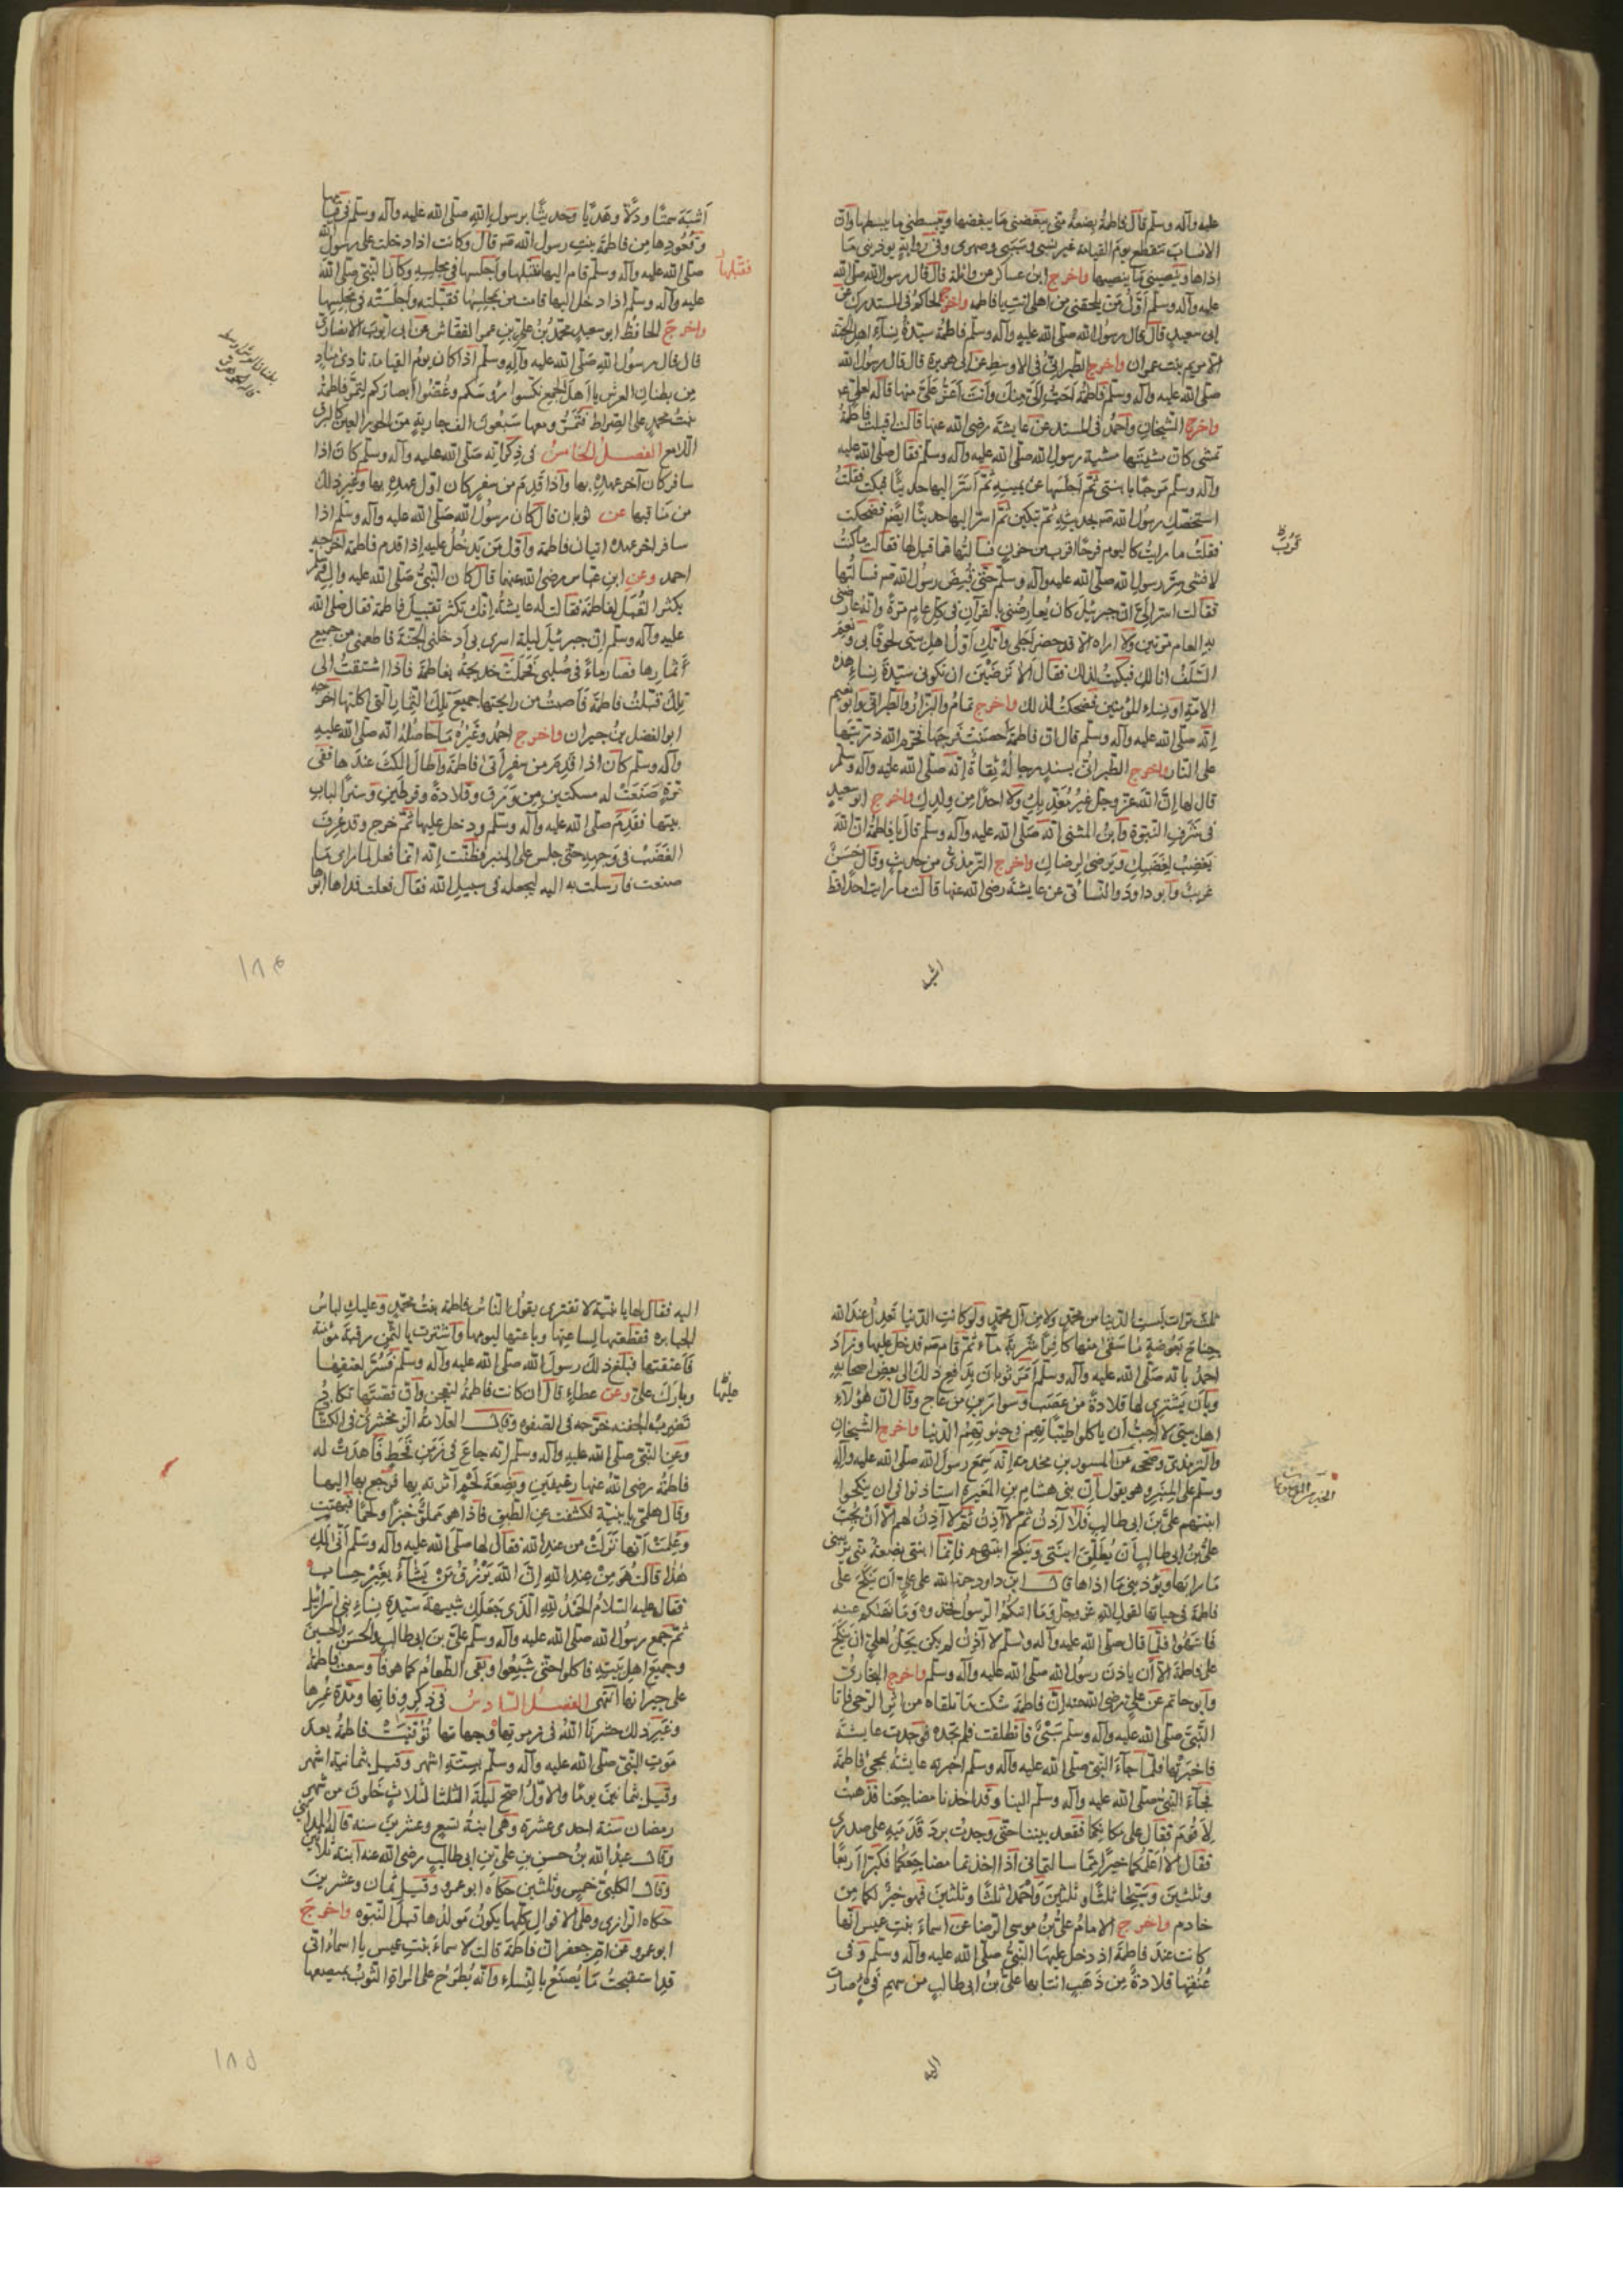 عليه وآله وسلم قال فاطمة بضعة متى يبغضنى ما يبغضها ويبسطنى ما يبسطها وان
الانساب تنقطع يوم القيامة غير نسبى وسببى وصهرى وفى رواية يوذينى ما
اذاها وينصبنى ما ينصبها واخرج ابن عساكر عن واثلة قال قال رسول الله صلى الله
عليه وآله وسلم اول من يلحقنى من اهلى انت يا فاطمه واخرج الحاكم فى المستدرك عن
ابى سعيد قال قال رسول الله صلى الله عليه وآله وسلم فاطمة سيدة نساء اهل الجنة
الا مريم بنت عمران واخرج الطبرانى فى الاوسط عن ابى هريرة قال قال رسول الله
صلى الله عليه وآله وسلم فاطمة احب الى منك وانت اعز على منها قاله لعلى
واخرج الشيخان واحمد فى المسند عن عايشة رضى الله عنها قالت اقبلت فاطمة
تمشى كان مشيتها مشية رسول الله صلى الله عليه وآله وسلم فقال صلى الله عليه
وآله وسلم مرحبا بابنتى ثم اجلسها عن يمينه ثم اسر اليها حديثا فبكت فقلت
استخصك رسول الله صه بحديثه ثم تبكين ثم اسر اليها حديثا ايضا فضحكت
فقلت ما رايت كاليوم فرحا اقرب من حزن فسالتها عما قيل لها فقالت ما كنت
لافشى سر رسول الله صلى الله عليه وآله وسلم حتى قبض رسول الله صه فسالتها
فقالت اسر الى ان جبرئيل كان يعارضنى بالقرآن فى كل عام مرة وانه عارضنى
به العام مرتين ولا اراه الا قد حضر اجلى وانك اول اهل بيتى لحوقا بى ونعم
السلف انا لك فبكيت لذلك فقال الا ترضين ان تكونى سيدة نساء هذه
الامة او نساء المؤمنين فضحكت لذلك واخرج تمام والبزار والطبرانى وابو نعيم
انه صلى الله عليه وآله وسلم قال ان فاطمة احصنت فرجها فحرم الله ذريتها
على النار واخرج الطبرانى بسند رجاله ثقاة انه صلى الله عليه وآله وسلم
قال لها ان الله عز وجل غير معذبك ولا احدا من ولدك واخرج ابو سعيد
فى شرف النبوة وابن المثنى انه صلى الله عليه وآله وسلم قال يا فاطمة ان الله
يغضب لغضبك ويرضى لرضاك واخرج الترمذى من حديث وقال حسن
غريب وابو داود والنسائى عن عايشة رضى الله عنها قالت ما رايت احدا قط
اشبه
اشبه سمتا ودلا وهديا وحديثا برسول الله صلى الله عليه وآله وسلم فى قيامها
وقعودها من فاطمة بنت رسول الله صه قال وكانت اذا دخلت على رسول الله
صلى الله عليه وآله وسلم قام اليها فقبلها واجلسها فى مجلسه وكان النبى صلى الله
فقبلها
عليه وآله وسلم اذا دخل اليها قامت من مجلسها فقبلته واجلسته فى مجلسها
واخرج الحافظ ابو سعيد محمد بن على بن عمر النقاش عن ابى ايوب الانصارى
قال قال رسول الله صلى الله عليه وآله وسلم اذا كان يوم القيامة نادى مناد
من بطنان العرش يا اهل الجمع نكسوا رؤسكم وغضوا ابصاركم لتمر فاطمة
بنت محمد على الصراط فتمر ومعها سبعون الف جارية من الحور العين كالبرق
اللامع الفصل الخامس فى ذكر انه صلى الله عليه وآله وسلم كان اذا
سافر كان آخر عهده بها واذا قدم من سفر كان اول عهده بها وغير ذلك
من مناقبها عن ثوبان قال كان رسول الله صلى الله عليه وآله وسلم اذا
سافر اخر عهده اتيان فاطمة واول من يدخل عليه اذا قدم فاطمة اخرجه
احمد وعن ابن عباس رضى الله عنهما قال كان النبى صلى الله عليه وآله وسلم
يكثر القبل لفاطمة فقالت له عايشة انك تكثر تقبيل فاطمة فقال صلى الله
عليه وآله وسلم ان جبرئيل ليلة اسرى بى ادخلنى الجنة فاطعمنى من جميع
اثمارها فصار ماء فى صلبى فحملت خديجة بفاطمة فاذا اشتقت الى
تلك قبلت فاطمة فاصبت من رايحتها جميع تلك الثمار التى اكلتها اخرجه
ابو الفضل بن خيران واخرج احمد وغيره ما حاصله انه صلى الله عليه
وآله وسلم كان اذا قدم من سفر اتى فاطمة واطال المكث عندها ففى
مرة صنعت له مسكتين من ورق وقلادة وقرطين وسترا لباب
بيتها فقدم صلى الله عليه وآله وسلم ودخل عليها ثم خرج وقد عرف
الغضب فى وجهه حتى جلس على المنبر فظنت انه انما فعل لما راى ما
صنعت فارسلت به اليه ليجعله فى سبيل الله فقال فعلت فداها ابوها
١٨٤
ثلث مرات ليست الدنيا من محمد ولا من آل محمد ولو كانت الدنيا تعدل عند الله
جناح بعوضة ما سقى منها كافرا شربة ماء ثم قام صه فدخل عليها وزاد
احمد بانه صلى الله عليه وآله وسلم امر ثوبان بدفع ذلك الى بعض اصحابه
وبان يشترى لها قلادة من عصب وسوارين من عاج وقال ان هؤلاء
اهل بيتى لا احب ان ياكلوا طيباتهم فى حيوتهم الدنيا واخرج الشيخان
والترمذى وصححه عن المسور بن مخرمه انه سمع رسول الله صلى الله عليه وآله
وسلم على المنبر وهو يقول ان بنى هشام بن المغيرة استاذنوا فى ان ينكحوا
ابنتهم على بن ابى طالب فلا آذن ثم لا آذن ثم لا آذن لهم الا ان يحب
على بن ابى طالب ان يطلق ابنتى وينكح ابنتهم فانما ابنتى بضعة منى يريبنى
ما رابها ويؤذينى ما اذاها قال ابن داود حرم الله على على ان ينكح على
فاطمة فى حياتها لقول الله عز وجل وما اتيكم الرسول فخذوه وما نهيكم عنه
فانتهوا فلما قال صلى الله عليه وآله وسلم لا آذن لم يكن يحل لعلى ان ينكح
على فاطمة الا ان ياذن رسول الله صلى الله عليه وآله وسلم واخرج البخارى
وابو حاتم عن على رضى الله عنه ان فاطمة شكت ما تلقاه من اثر الرحى فاتا
النبى صلى الله عليه وآله وسلم سبى فانطلقت فلم تجده فوجدت عايشة
فاخبرتها فلما جاء النبى صلى الله عليه وآله وسلم اخبرته عايشة بمجئ فاطمة
فجاء النبى صلى الله عليه وآله وسلم الينا وقد اخذنا مضاجعنا فذهبت
لاقوم فقال على مكانكما فقعد بيننا حتى وجدت برد قدميه على صدرى
فقال الا اعلمكما خيرا مما سالتمانى اذا اخذتما مضاجعكما فكبرا اربعا
وثلثين وسبحا ثلثا وثلثين واحمدا ثلثا وثلثين فهو خير لكما من
خادم واخرج الامام على بن موسى الرضا عن اسماء بنت عميس انها
كانت عند فاطمة اذ دخل عليها النبى صلى الله عليه وآله وسلم وفى
عنقها قلادة من ذهب اتى بها على بن ابى طالب من سهم فئ صارت
اليه
اليه فقال لها يا بنية لا تغترى بقول الناس فاطمة بنت محمد وعليك لباس
الجبابره فقطعتها لساعتها وباعتها ليومها واشترت بالثمن رقبة مؤمنة
فاعتقتها فبلغ ذلك رسول الله صلى الله عليه وآله وسلم فسر لعتقها
وبارك على وعن عطاء قال ان كانت فاطمة لتعجن وان قصتها تكاد
تضرب الجفنه خرجه فى الصفوه وقال العلامة الزمخشرى فى الكشاف
وعن النبى صلى الله عليه وآله وسلم انه جاع فى زمن قحط فاهدت له
فاطمة رضى الله عنها رغيفين وبضعة لحم آثرته بها فرجع بها اليها
وقال هلمى يا بنية فكشفت عن الطبق فاذا هو مملو خبزا ولحما فبهتت
وعلمت انها نزلت من عند الله فقال لها صلى الله عليه وآله وسلم انى لك
هذا قالت هو من عند الله ان الله يرزق من يشاء بغير حساب
فقال عليه السلام الحمد لله الذى جعلك شبيهة سيدة نساء بنى اسرائيل
ثم جمع رسول الله صلى الله عليه وآله وسلم على بن ابى طالب والحسن والحسين
وجميع اهل بيته فاكلوا حتى شبعوا وبقى الطعام كما هو فاوسعت فاطمة
على جيرانها انتهى الفصل السادس فى ذكر وفاتها ومدة عمرها
وغير ذلك حشرنا الله فى زمرتها ومحبها توفيت فاطمة بعد
موت النبى صلى الله عليه وآله وسلم بستة اشهر وقيل بثمانية اشهر
وقيل بثمانين يوما والاول اصح ليلة الثلثا لثلاث خلون من شهر
رمضان سنة احدى عشرة وهى ابنة تسع وعشرين سنه قاله المداينى
وقال عبد الله بن حسن بن على بن ابى طالب رضى الله عنه ابنة ثلاثين
وقال الكلبى خمس وثلثين حكاه ابو عمرو وقيل ثمان وعشرين
حكاه الرازى وعلى الاقوال كلها يكون مولدها قبل النبوه واخرج
ابو عمرو عن ام جعفر ان فاطمة قالت لاسماء بنت عميس يا اسماء انى
قد استقبحت ما يصنع بالنساء وانه يطرح على المراة الثوب فيصفها
١٨٥